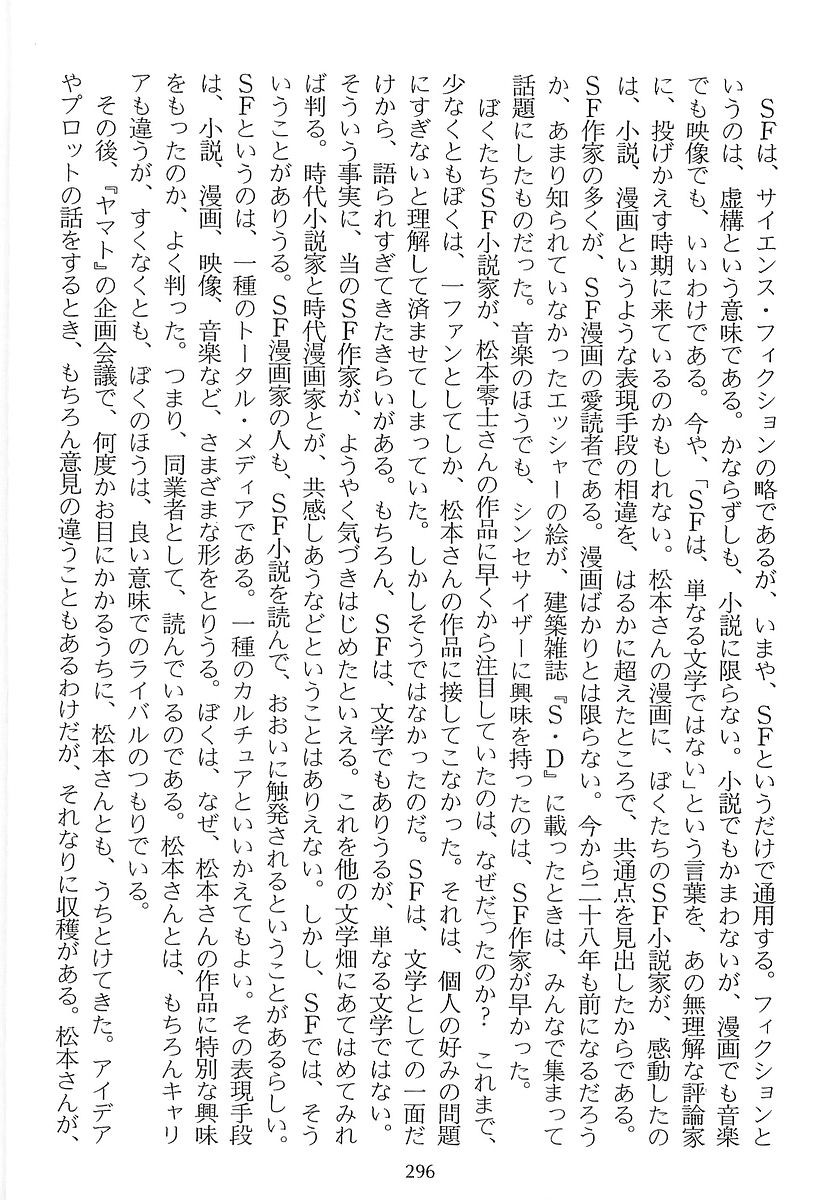 ＳＦは、サイエンス・フィクションの略であるが、いまや、ＳＦというだけで通用する。フィクションと
いうのは、虚構という意味である。かならずしも、小説に限らない。小説でもかまわないが、漫画でも音楽
でも映像でも、いいわけである。今や、「ＳＦは、単なる文学ではない」という言葉を、あの無理解な評論家
に、投げかえす時期に来ているのかもしれない。松本さんの漫画に、ぼくたちのＳＦ小説家が、感動したの
は、小説、漫画というような表現手段の相違を、はるかに超えたところで、共通点を見出したからである。
ＳＦ作家の多くが、ＳＦ漫画の愛読者である。漫画ばかりとは限らない。今から二十八年も前になるだろう
か、あまり知られていなかったエッシャーの絵が、建築雑誌『Ｓ・Ｄ』に載ったときは、みんなで集まって
話題にしたものだった。音楽のほうでも、シンセサイザーに興味を持ったのは、ＳＦ作家が早かった。
　ぼくたちＳＦ小説家が、松本零士さんの作品に早くから注目していたのは、なぜだったのか？　これまで、
少なくともぼくは、一ファンとしてしか、松本さんの作品に接してこなかった。それは、個人の好みの問題
にすぎないと理解して済ませてしまっていた。しかしそうではなかったのだ。ＳＦは、文学としての一面だ
けから、語られすぎてきたきらいがある。もちろん、ＳＦは、文学でもありうるが、単なる文学ではない。
そういう事実に、当のＳＦ作家が、ようやく気づきはじめたといえる。これを他の文学畑にあてはめてみれ
ば判る。時代小説家と時代漫画家とが、共感しあうなどということはありえない。しかし、ＳＦでは、そう
いうことがありうる。ＳＦ漫画家の人も、ＳＦ小説を読んで、おおいに触発されるということがあるらしい。
ＳＦというのは、一種のトータル・メディアである。一種のカルチュアといいかえてもよい。その表現手段
は、小説、漫画、映像、音楽など、さまざまな形をとりうる。ぼくは、なぜ、松本さんの作品に特別な興味
をもったのか、よく判った。つまり、同業者として、読んでいるのである。松本さんとは、もちろんキャリ
アも違うが、すくなくとも、ぼくのほうは、良い意味でのライバルのつもりでいる。
　その後、『ヤマト』の企画会議で、何度かお目にかかるうちに、松本さんとも、うちとけてきた。アイデア
やプロットの話をするとき、もちろん意見の違うこともあるわけだが、それなりに収穫がある。松本さんが、
296